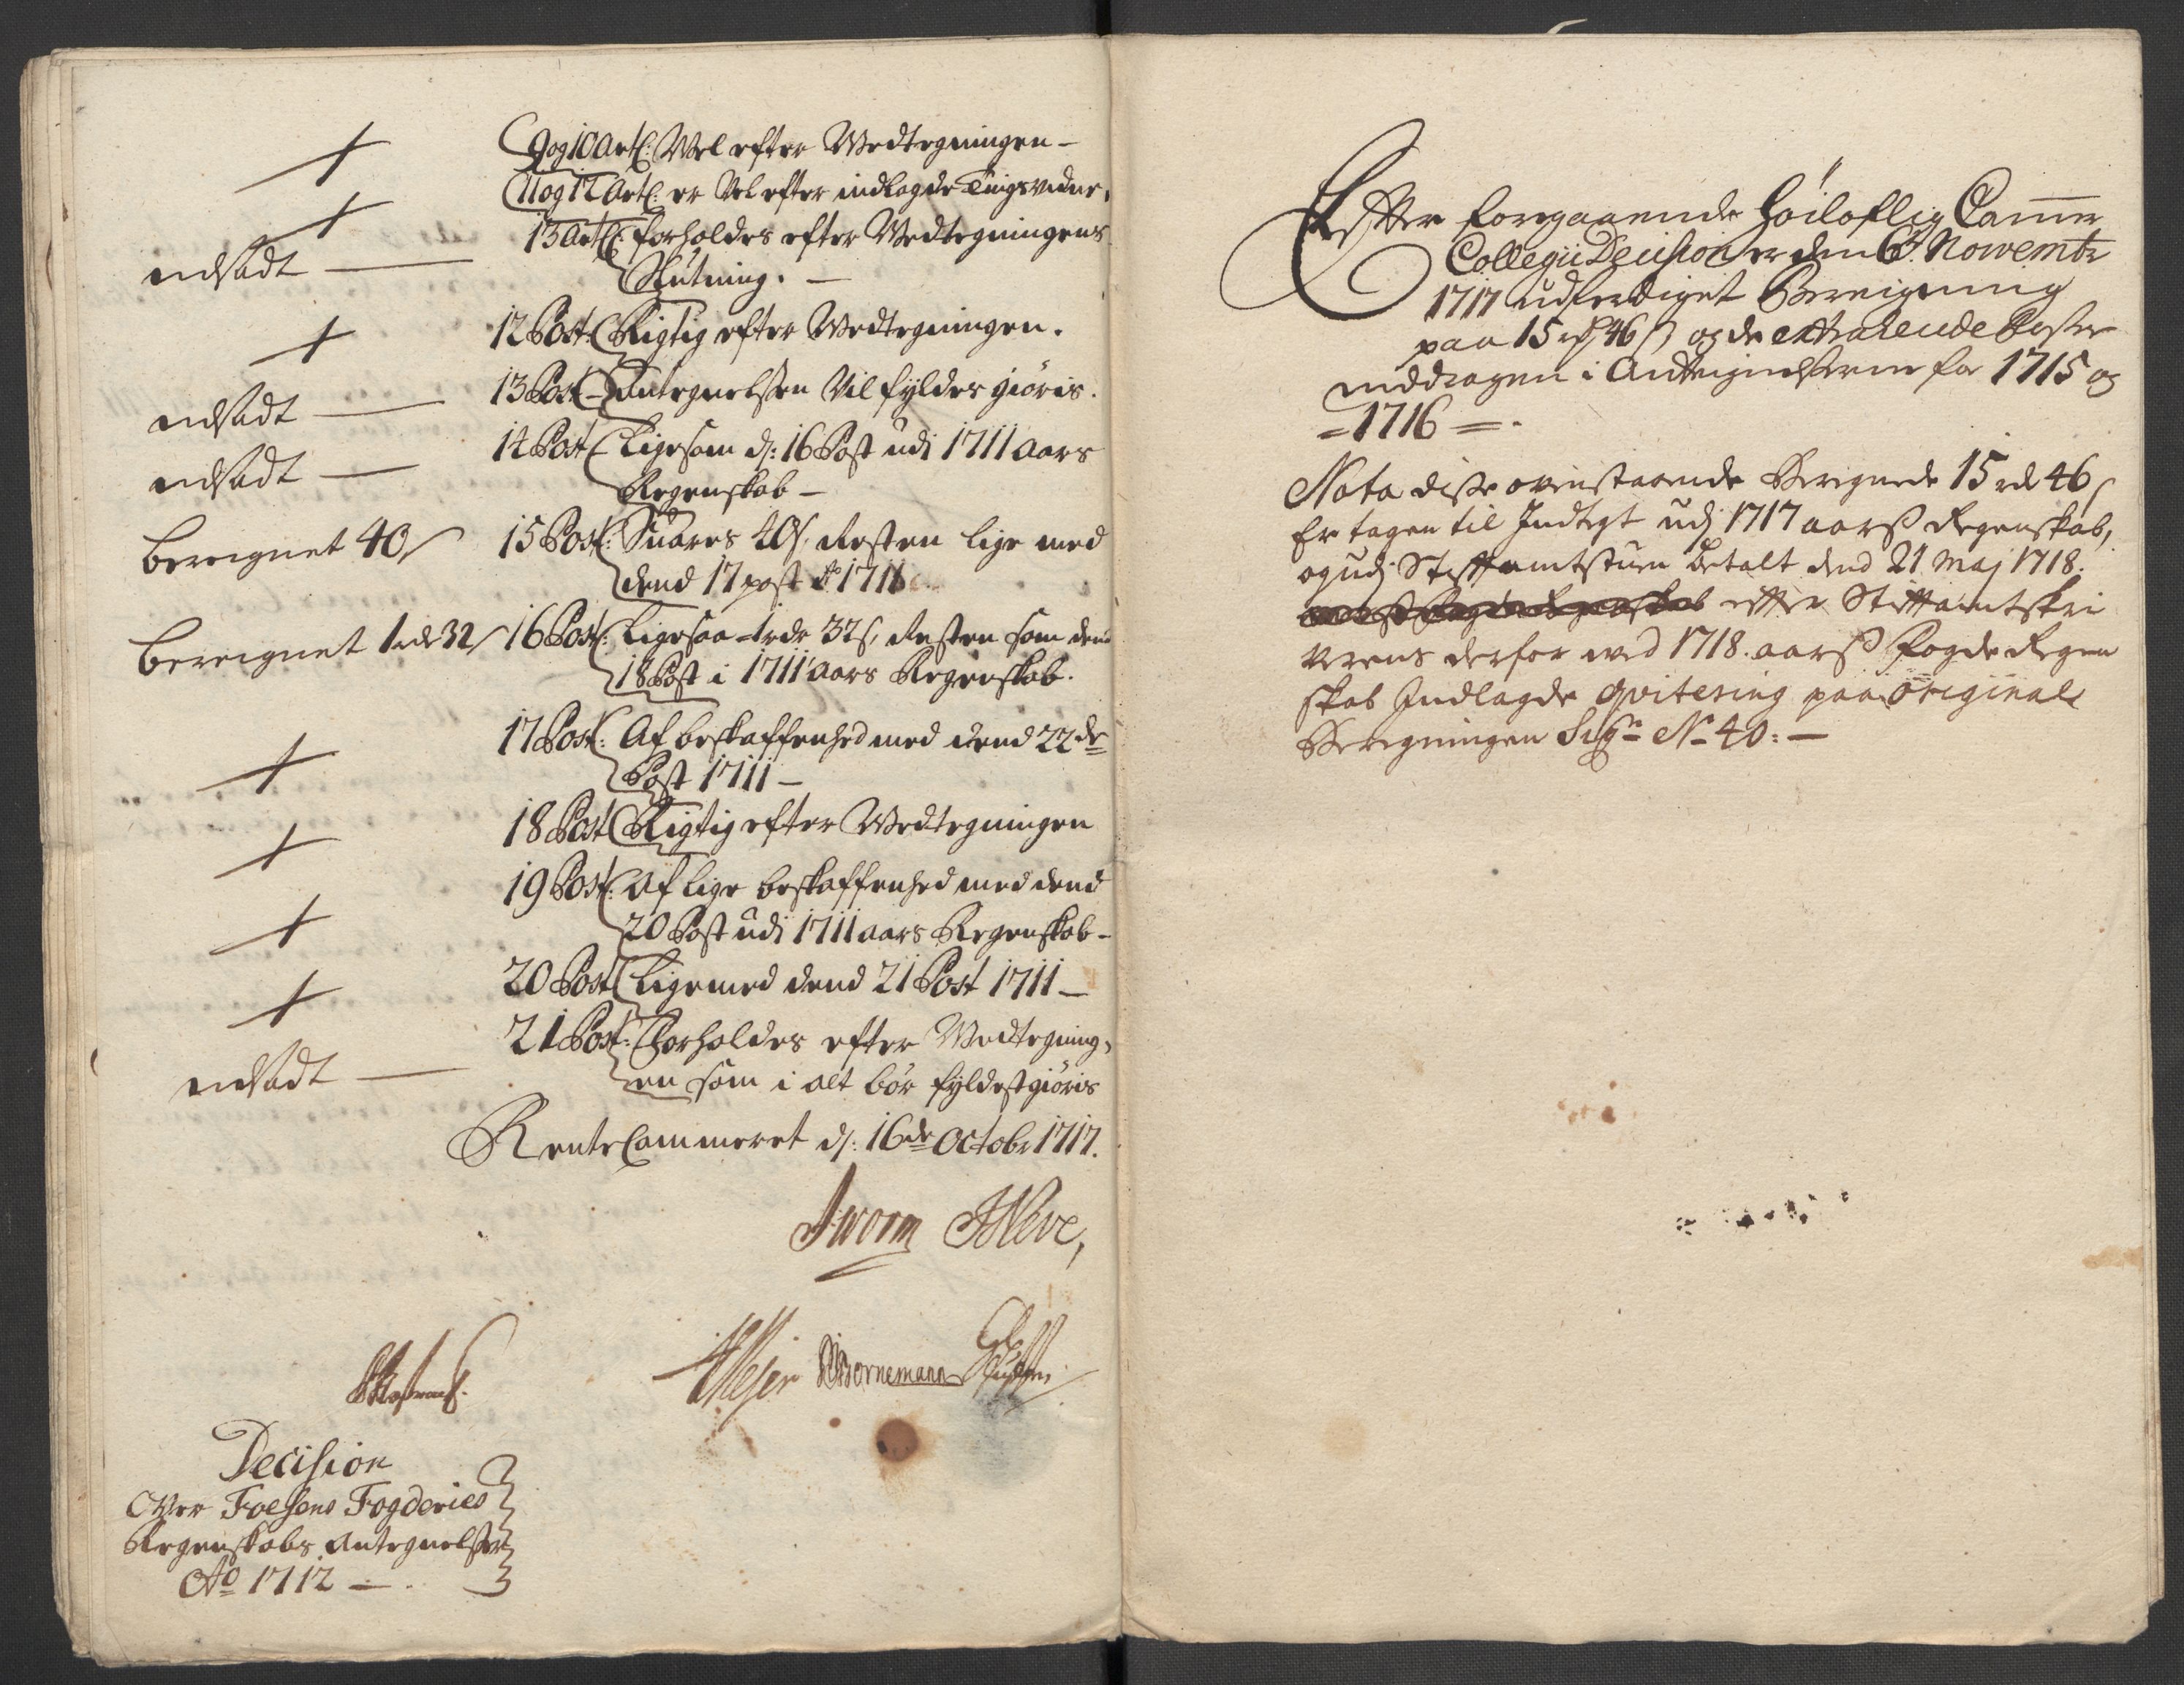 + 9 og 10 Artl: Vel efter Wedtegningen –
+ 11 og 12 Artl: er Vel efter indlagde Tingsvidne.
udsadt — 13 Artl: forholdes efter Wedtegningens
Slutning. –
+ 12 Post: Rigtig efter Wedtegningen.
udsadt — 13 Post – Antegnelssen Vil fyldes giöris.
udsadt — 14 Post Ligesom d: 16 Post udi 1711 Aars
Regenskab –
bereignet 40 s 15 Post: Suares 40 s, Resten lige med
dend 17 post Ao 1711
bereignet 1 rdr 32 s 16 Post: Ligesaa 1 rdr 32 s, Resten som dend
18 Post i 1711 Aars Regenskab.
+ 17 Post: Af beskaffenhed med dend 22de
Post 1711 –
+ 18 Post Rigtig efter Wedtegningen
+ 19 Post: Af lige beskaffenhed med dend
20 Post udi 1711 aars Regenskab –
+ 20 Post Lige med dend 21 Post 1711 –
udsadt — 21 Post: Forholdes efter Wedtegning,
en som i alt bör fyldestgiöris
Rente Cammeret d: 16de Octobr 1717.
Worm
Meyer Bornemann
Decision
Over Foesens Fogderies
Regenskabs Antegnelsser
Ao 1712 –.
Efter foregaaende Höiloflig Cammer
Collegii Decision er den 6t Novembr
1717 udferdiget Bereigning
paa 15 rdr 46 s og de extraherede Poster
inddragen i Antegnelserne for 1715 og
= 1716 =.
Nota disse ovenstaaende Beregnede 15 rdr 46 s
Er tagen til Indtegt udj 1717 aarss Regenskab,
og udj Stiftamtstuen betalt dend 21 Maj 1718.
efter Stiftamtskri
verens derfor wed 1718. aarss Fogde Regen
skab Indlagde Qvitering paa Original
Beregningen Sign No 40: –